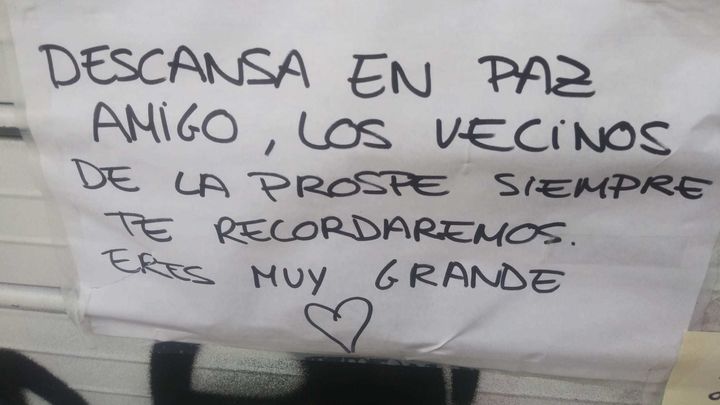 DESCANSA EN PAZ
AMIGO, LOS VECINOS
DE LA PROSPE SIEMPRE
TE RECORDAREMOS.
ERES MUY GRANDE